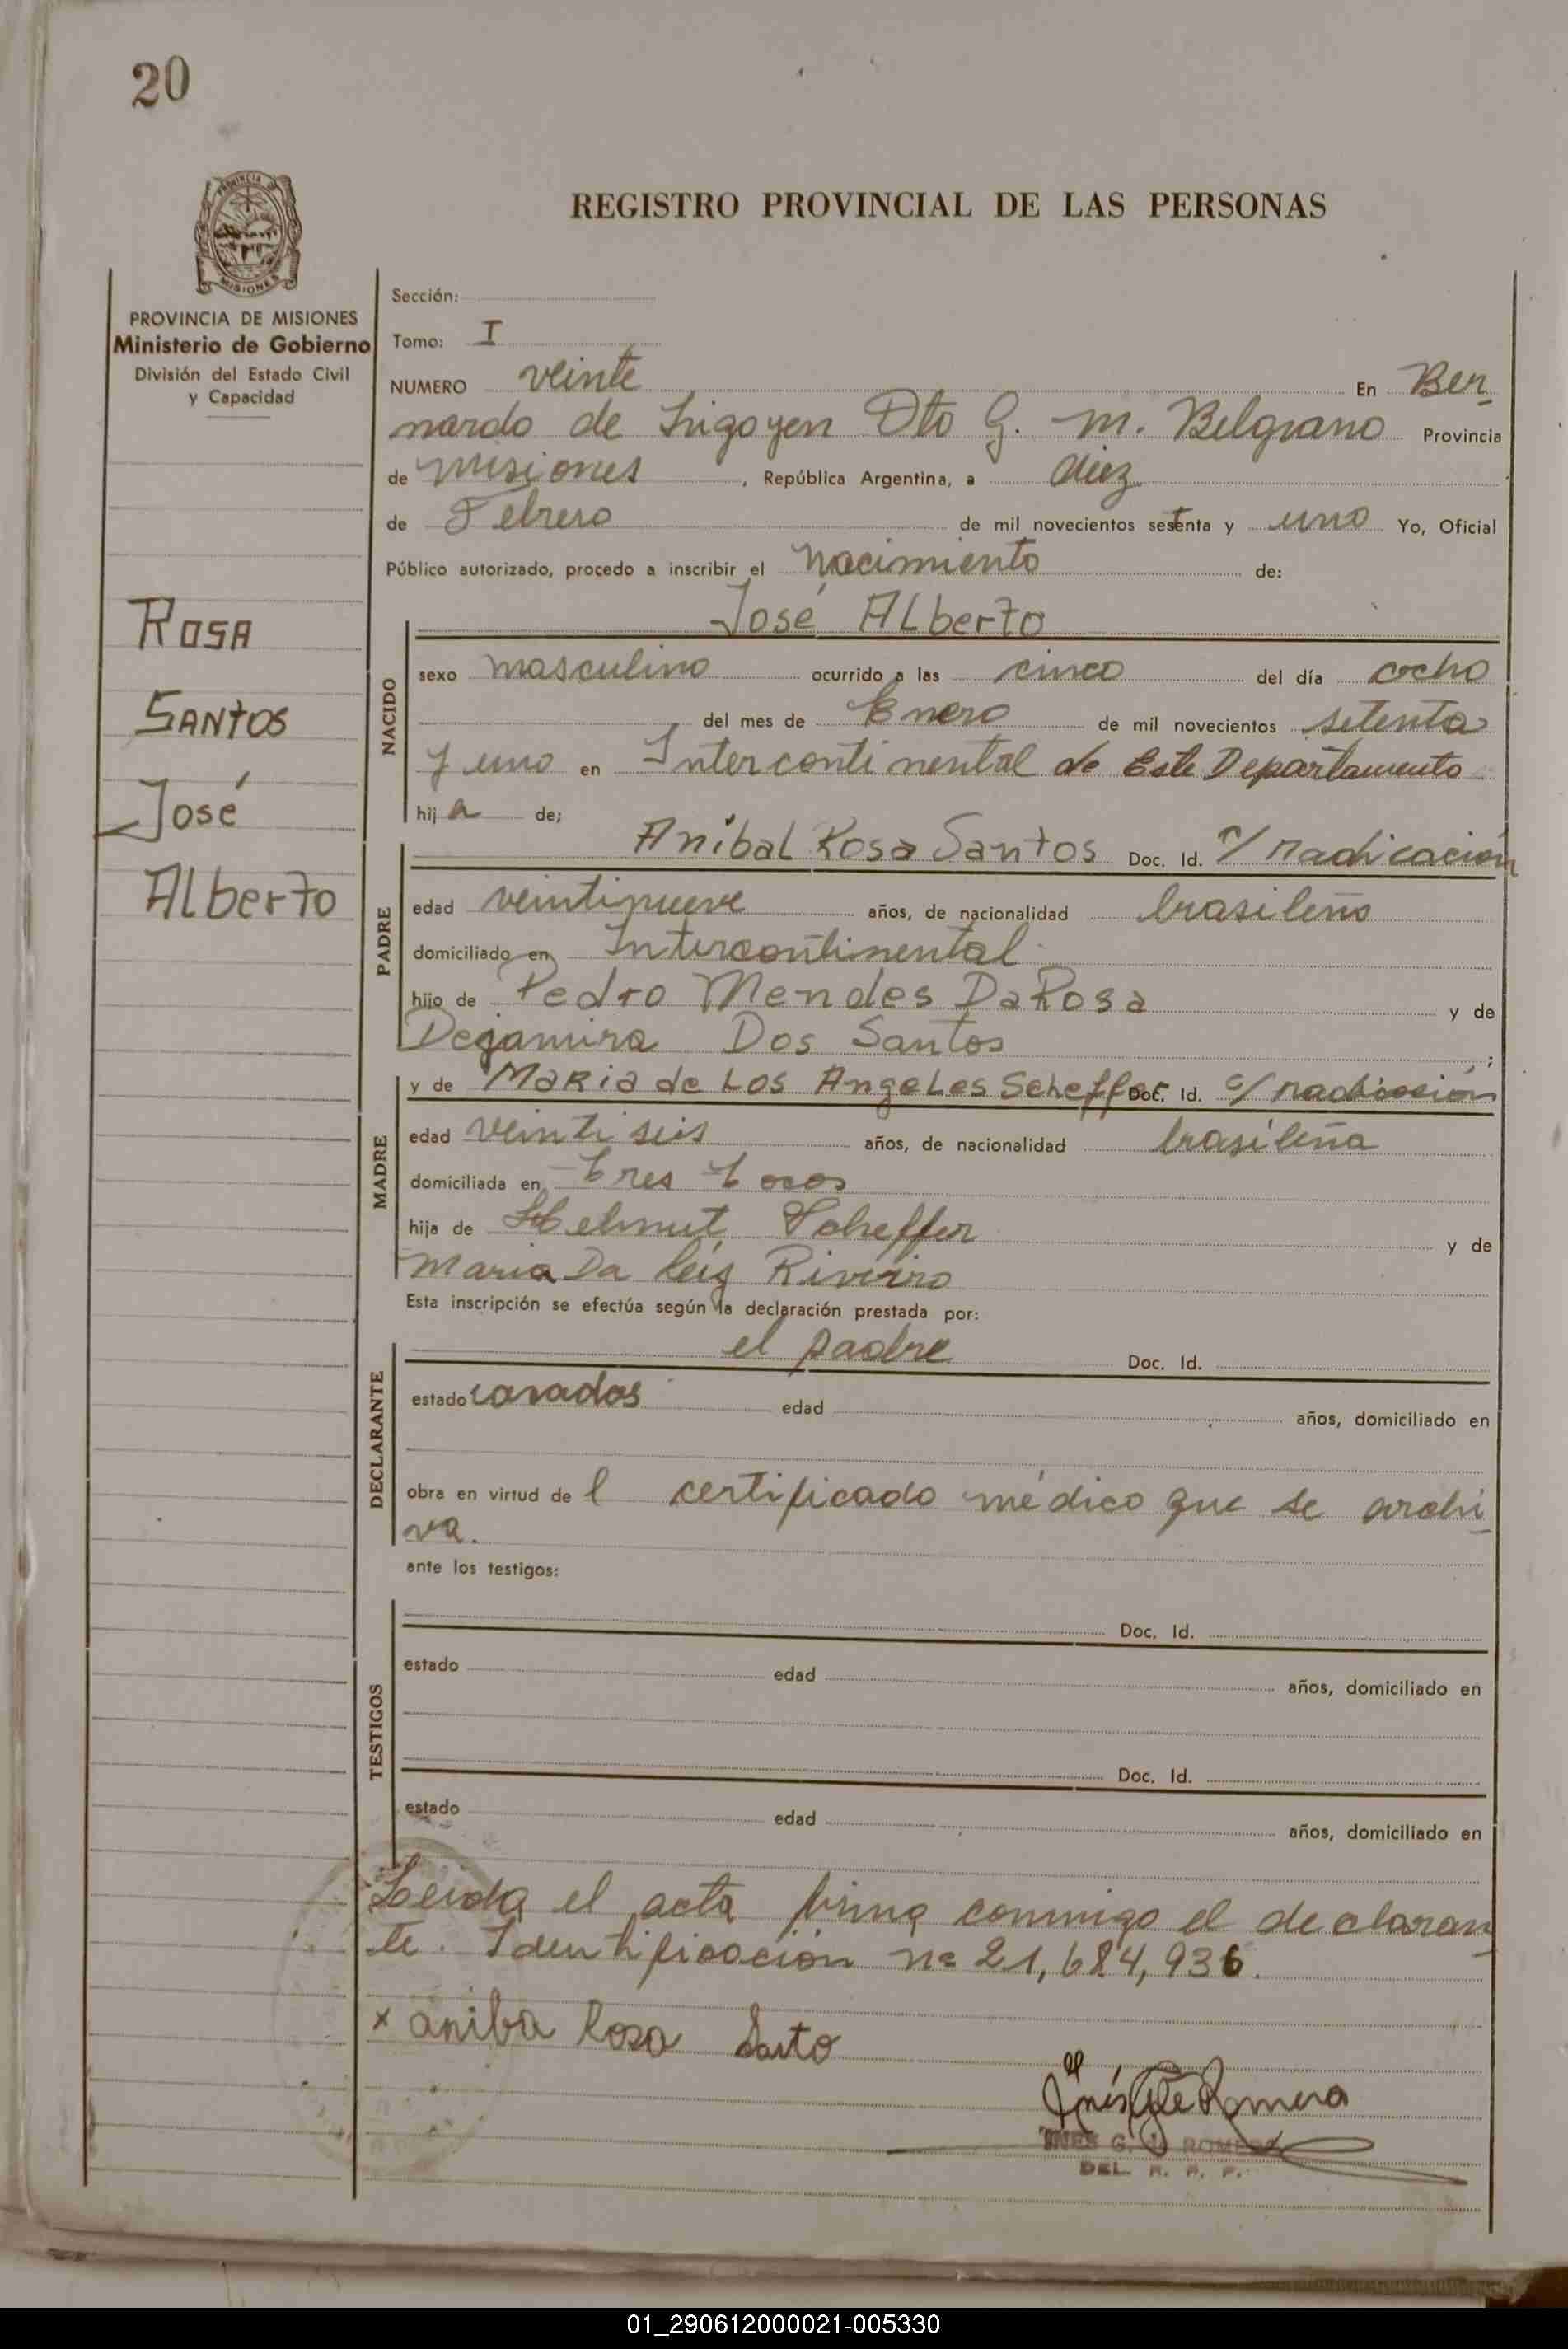 20
PROVINCIA DE
MISIONES
PROVINCIA DE MISIONES
Ministerio de Gobierno
División del Estado Civil
y Capacidad
ROSA
SANTOS
José
Alberto
REGISTRO PROVINCIAL DE LAS PERSONAS
Sección:
Tomo: I
NUMERO veinte En Ber
nardo de Irigoyen Dto G. M. Belgrano Provincia
de Misiones, República Argentina, a diez
de Febrero de mil novecientos setenta y uno Yo, Oficial
Público autorizado, procedo a inscribir el Nacimiento de:
José Alberto
NACIDO
sexo masculino ocurrido a las cinco del día ocho
del mes de Enero de mil novecientos setenta
y uno en Intercontinental de Este Departamento
hija de;
Anibal Rosa Santos Doc. Id. c/ radicación
PADRE
edad veintinueve años, de nacionalidad brasileño
domiciliado en Intercontinental
hijo de Pedro Mendes Da Rosa y de
Dejamira Dos Santos ;
y de Maria de Los Angeles Scheffer Doc. Id. c/ radicación
MADRE
edad veinti seis años, de nacionalidad brasileña
domiciliada en Tres
hija de Helmut Scheffer y de
Maria Da Riveiro
Esta inscripción se efectúa según la declaración prestada por:
el padre Doc. Id.
DECLARANTE
estado casados edad años, domiciliado en
obra en virtud del certificado médico que se archi
va.
ante los testigos:
Doc. Id.
TESTIGOS
estado edad años, domiciliado en
Doc. Id.
estado edad años, domiciliado en
Leida el acta firma conmigo el declaran
te. Identificación nº 21,684,936.
x aniba Rosa Santo
Inés G. de Romera
INES G. D. ROMERA
DEL. R. P. P.
01_290612000021-005330